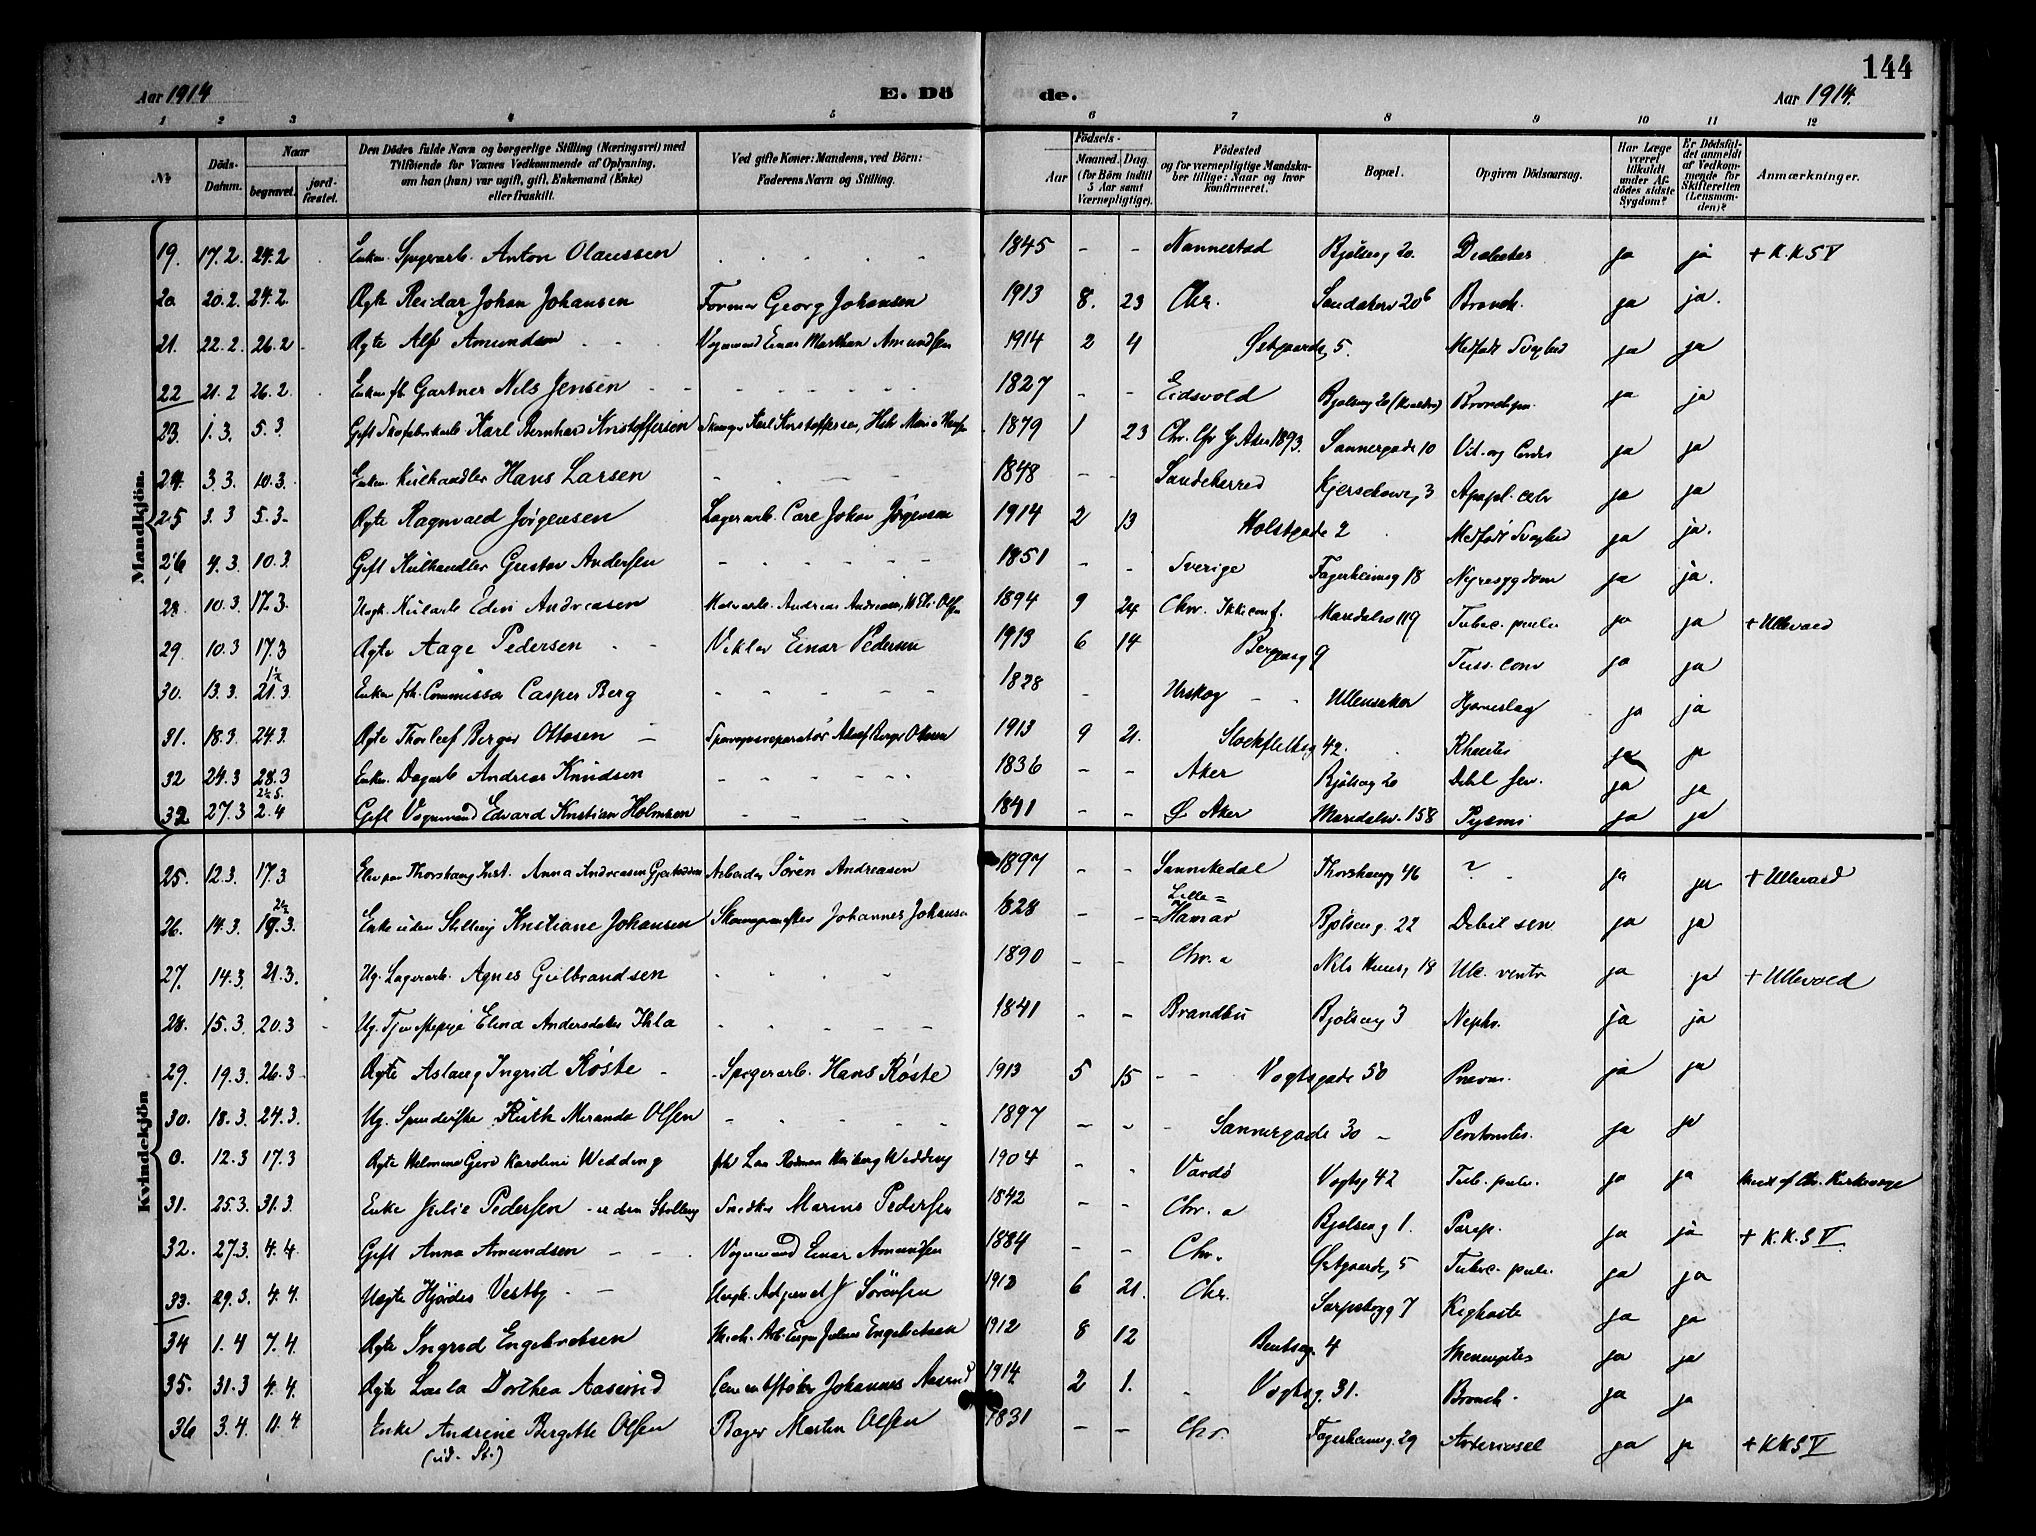 144
Aar 1914 E. Dö de. Aar 1914.
1 2 3 4 5 6 7 8 9 10 11 12
№ Döds-Datum. Naar begravet. jord-fæstet. Den Dödes fulde Navn og borgerlige Stilling (Næringsvei) med Tilföiende for Voxnes Vedkommende af Oplysning, om han (hun) var ugift, gift, Enkemand (Enke) eller fraskilt. Ved gifte Koner: Mandens, ved Börn: Faderens Navn og Stilling. Födsels- Aar Maaned. Dag. (for Börn indtil 5 Aar samt Værnepligtige). Födested og for værnepligtige Mandska-ber tillige: Naar og hvor konfirmeret. Bopæl. Opgiven Dödsaarsag. Har Læge været tilkaldt under Af-dödes sidste Sygdom? Er Dödsfal-det anmeldt af Vedkom-mende for Skifteretten (Lensman-den)? Anmærkninger.
Mandkjön.
19. 17.2. 24.2 Enkem. Spigerarb. Anton Olaussen 1845 - - Nannestad Bjølseng 20. Diabetes ja ja + K.K.S V
20 20.2. 24.2. Ægte Reidar Johan Johansen Former Georg Johansen 1913 8. 23 Chr. Sandakerv 20 b Bronch. ja ja.
21. 22.2. 26.2 Ægte Alf Amundsen Vognmand Einar Marthan Amundsen 1914 2 4 Østgaardsg 5. Medfødt Svaghed ja ja
22 21.2 26.2. Enkem fh Gartner Nils Jensen 1827 - - Eidsvold Bjølseng 20 Bronchpn. ja ja
23. 1.3. 5.3 Gift Skofabrikarb Karl Bernhard Kristoffersen Karl Kristoffersen, 1879 1 23 Chr. G Aker 1893. Sannergade 10 Vit. og Cordis ja ja
24. 3.3. 10.3. Enkem Kulhandler Hans Larsen 1848 - - Sandeherred Kjerschowsg 3 Apopl. cebr ja ja
25 3.3 5.3- Ægte Ragnvald Jörgensen Lagerarb. Carl Johan Jörgensen 1914 2 13 Holstgade 2 Medfødt Svaghed ja ja.
26 4.3. 10.3. Gift Kulhandler Gustav Andersen 1851 - - Sverige Fagerheimsg 18 Nyresygdom ja ja.
28. 10.3. 17.3. Andreasen Andreas Andreasen, 1894 9 24 Chr. Ikke conf. Maridalsv 119 Tuberc. pulm ja ja + Ullevaal
29. 10.3 17.3 Ægte Aage Pedersen Vekler Einar Pedersen 1913 6 14 Bergensg 9 Tuss. conv ja ja
30. 13.3. 21.3. Enkem fh. Commissær Casper Berg 1828 - Urskog Ullensaker Hjerneslag ja ja
31. 18.3. 24.3. Ægte Thorleif Berger Ottosen Sporvognsreparatør Adolf Berger Ottosen 1913 9 21. Stockflethsg 42. Rhachitis ja ja
32 24.3 28.3 Enkem. Dagarb Andreas Knudsen 1836 - - Aker Bjølseng 20 Debil sen. ja ja
32 27.3 2.4 Gift Vognmand Edvard Kristian Holmsen 1841 - - Ø Aker Maridalsv. 158 Pyæmi ja ja
Kvindekjön
25. 12.3. 17.3 Elev paa Thorshaug Inst. Anna Andreasen Arbeider Sören Andreasen 1897 - - Sannikedal Thorshaugg 46 ? ja ja + Ullevaal
26. 14.3. 19.3. Enke uden Stilling Kristiane Johansen Johannes Johansen 1828 - - Lille=
=Hamar Bjølseng. 22 Debil sen ja ja
27. 14.3. 21.3. Ug. Lagerarb. Agnes Gulbrandsen 1890 - - Chr. a Nils Huusg 18 Ulc. ventr ja ja + Ullevold
28. 15.3. 20.3 Ug. Elina Andersdatter Ihla 1841 - - Brandbu Bjølseng 3 Nephr. ja ja
29. 19.3. 26.3 Ægte Aslaug Ingrid Röste Spigerarb. Hans Röste 1913 5 15 - - Vogtsgade 50 Pnevm. ja ja
30. 18.3. 24.3. Ug. Spinderiske Ruth Miranda Olsen 1897 - - Sannergade 30 Peritonitis. ja ja
0. 12.3 17.3 Ægte Karoline Wedding Wedding 1904 - - Vardö Vogtsg 42 Tub. pulm. ja ja
31. 25.3. 31.3. Enke Julie Pedersen uden Stilling Snedker Marius Pedersen 1842 Chr. a Bjølseng 1. ja ja + K.K.S V.
32. 27.3. 4.4. Gift Anna Amundsen Vognmand Einar Amundsen 1884 - - Chr. Østgaardsg 5 Tuberc. pulm. ja ja
33. 29.3. 4.4. Uægte Hjördis Vestby Sörensen 1913 6 21. Chr. Sarpsborgg 7 Kighoste ja ja
34 1.4 7.4. Ægte Ingrid Engebretsen Engebretsen 1912 8 12 Bentseg. 4 Meningitis ja ja
35. 31.3 4.4. Ægte Laila Dorthea Aasrind Cementstøber Johannes 1914 2 1. Vogtsg. 31. Bronch. ja ja
36 3.4. 11.4 Enke Andrine Bergitte Olsen Bager Martin Olsen 1831 - - Chr. Fagerheimsg. 29 ja ja + K K S V
(ud. St.)